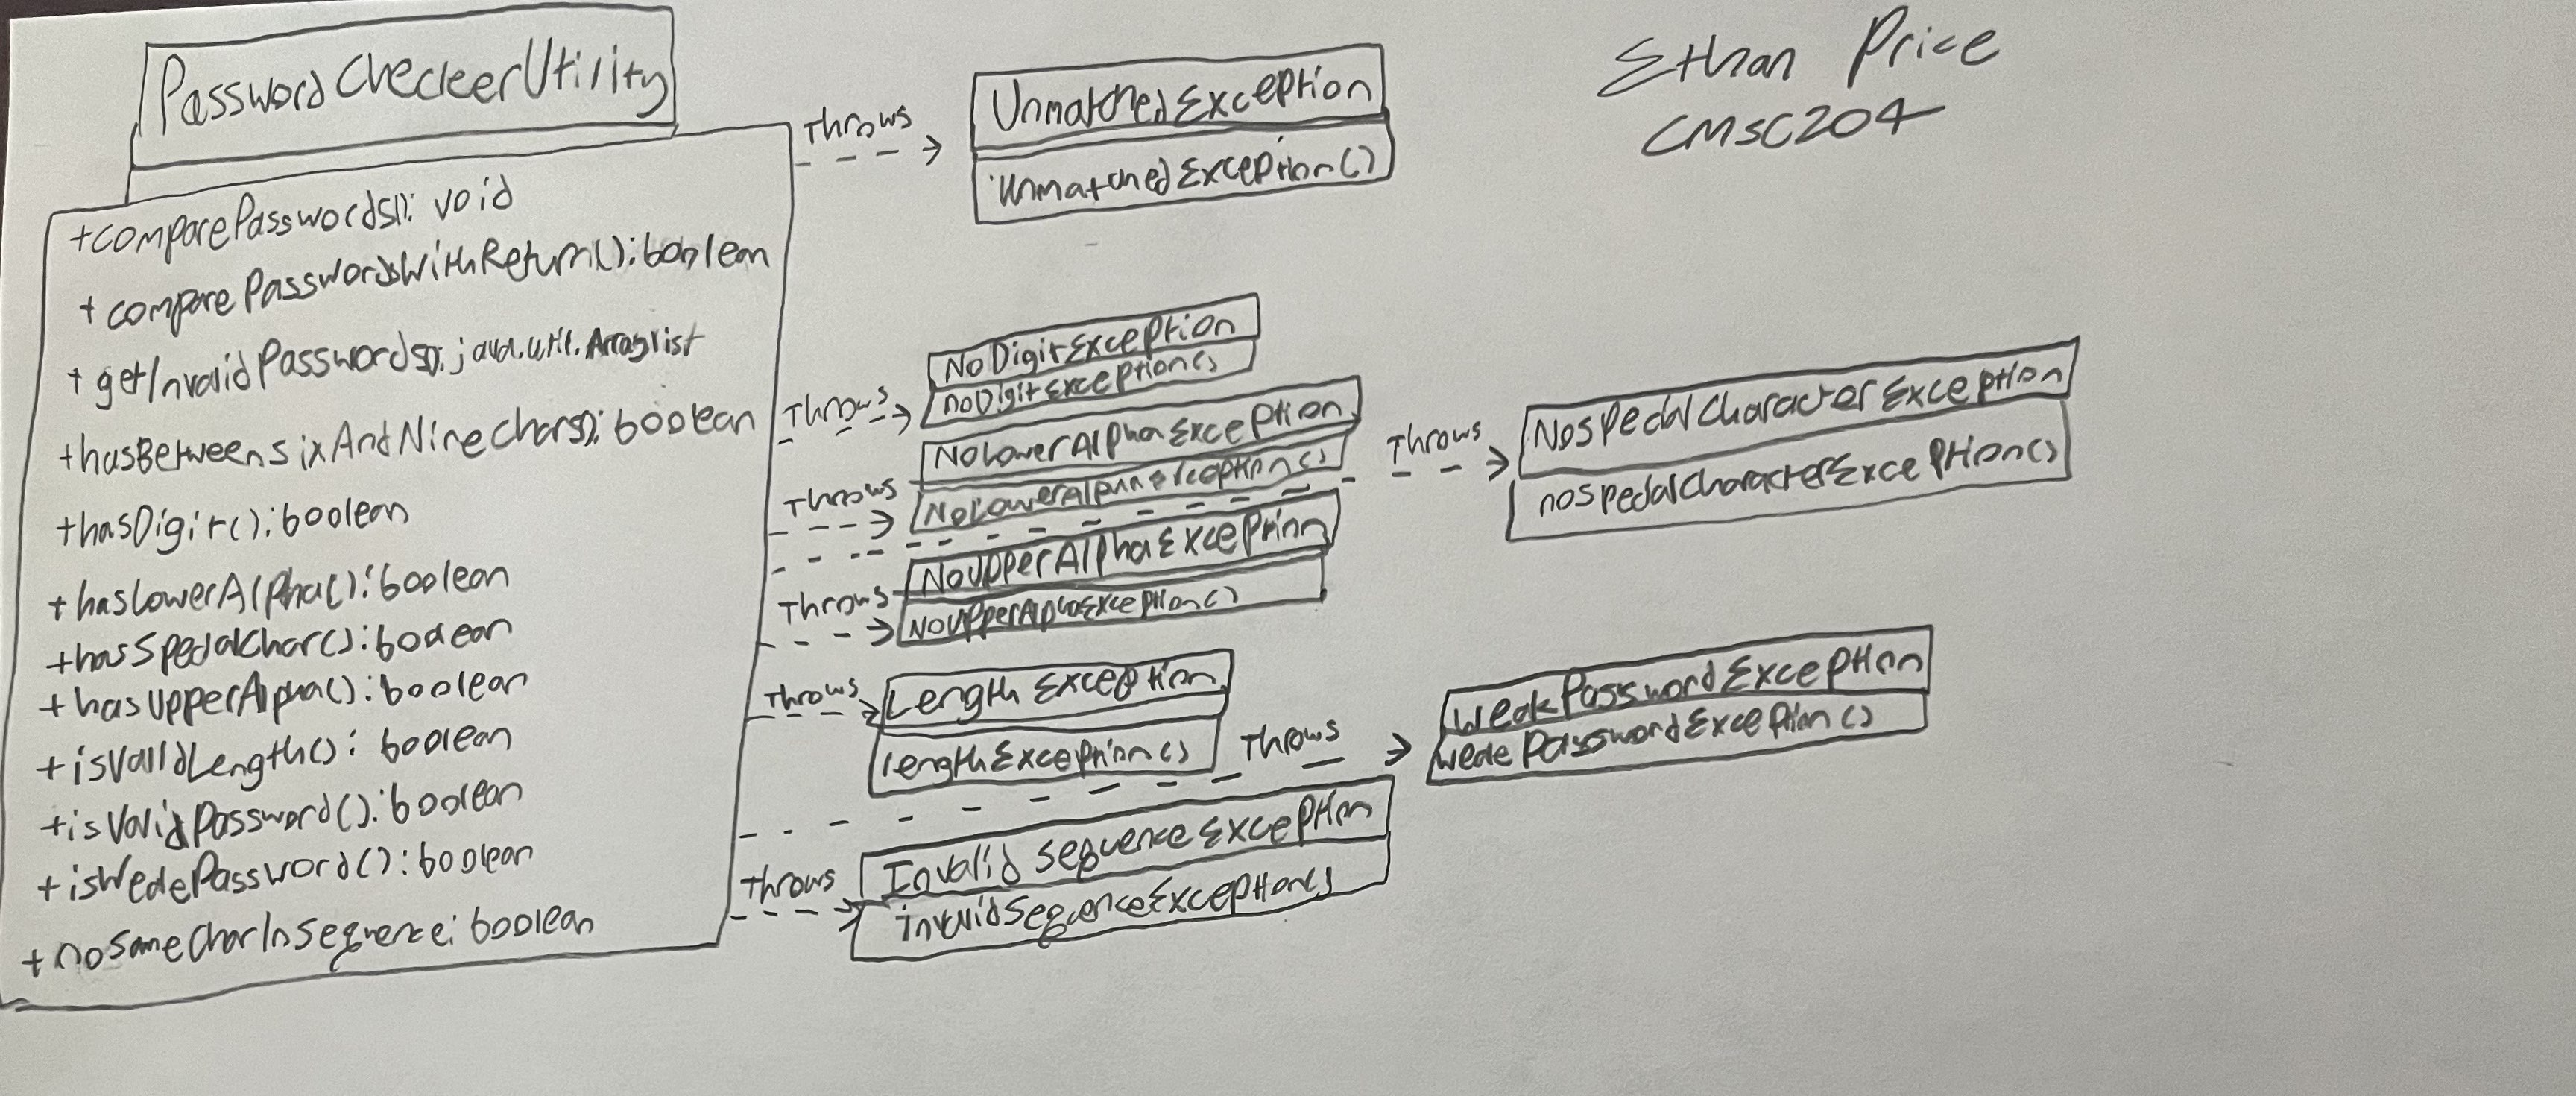 PasswordCheckerUtility
+comparePasswords(): void
+comparePasswordsWithReturn():boolean
+getInvalidPasswords(): java.util.Arraylist
+hasBetweenSixAndNineChars(): boolean
+hasDigit():boolean
+hasLowerAlpha():boolean
+hasSpecialChar():boolean
+hasUpperAlpha():boolean
+isValidLength(): boolean
+isValidPassword():boolean
+isWeakPassword():boolean
+noSameCharInSequence: boolean
Throws
UnmatchedException
UnmatchedException()
Ethan Price
CMSC204
Throws
NoDigitException
noDigitException()
Throws
NoLowerAlphaException
NoLowerAlphaException()
Throws
NoSpecialCharacterException
noSpecialCharacterException()
Throws
NoUpperAlphaException
NoUpperAlphaException()
Throws
Length Exception
lengthException()
Throws
WeakPasswordException
weakPasswordException()
Throws
Invalid SequenceException
invalidSequenceException()